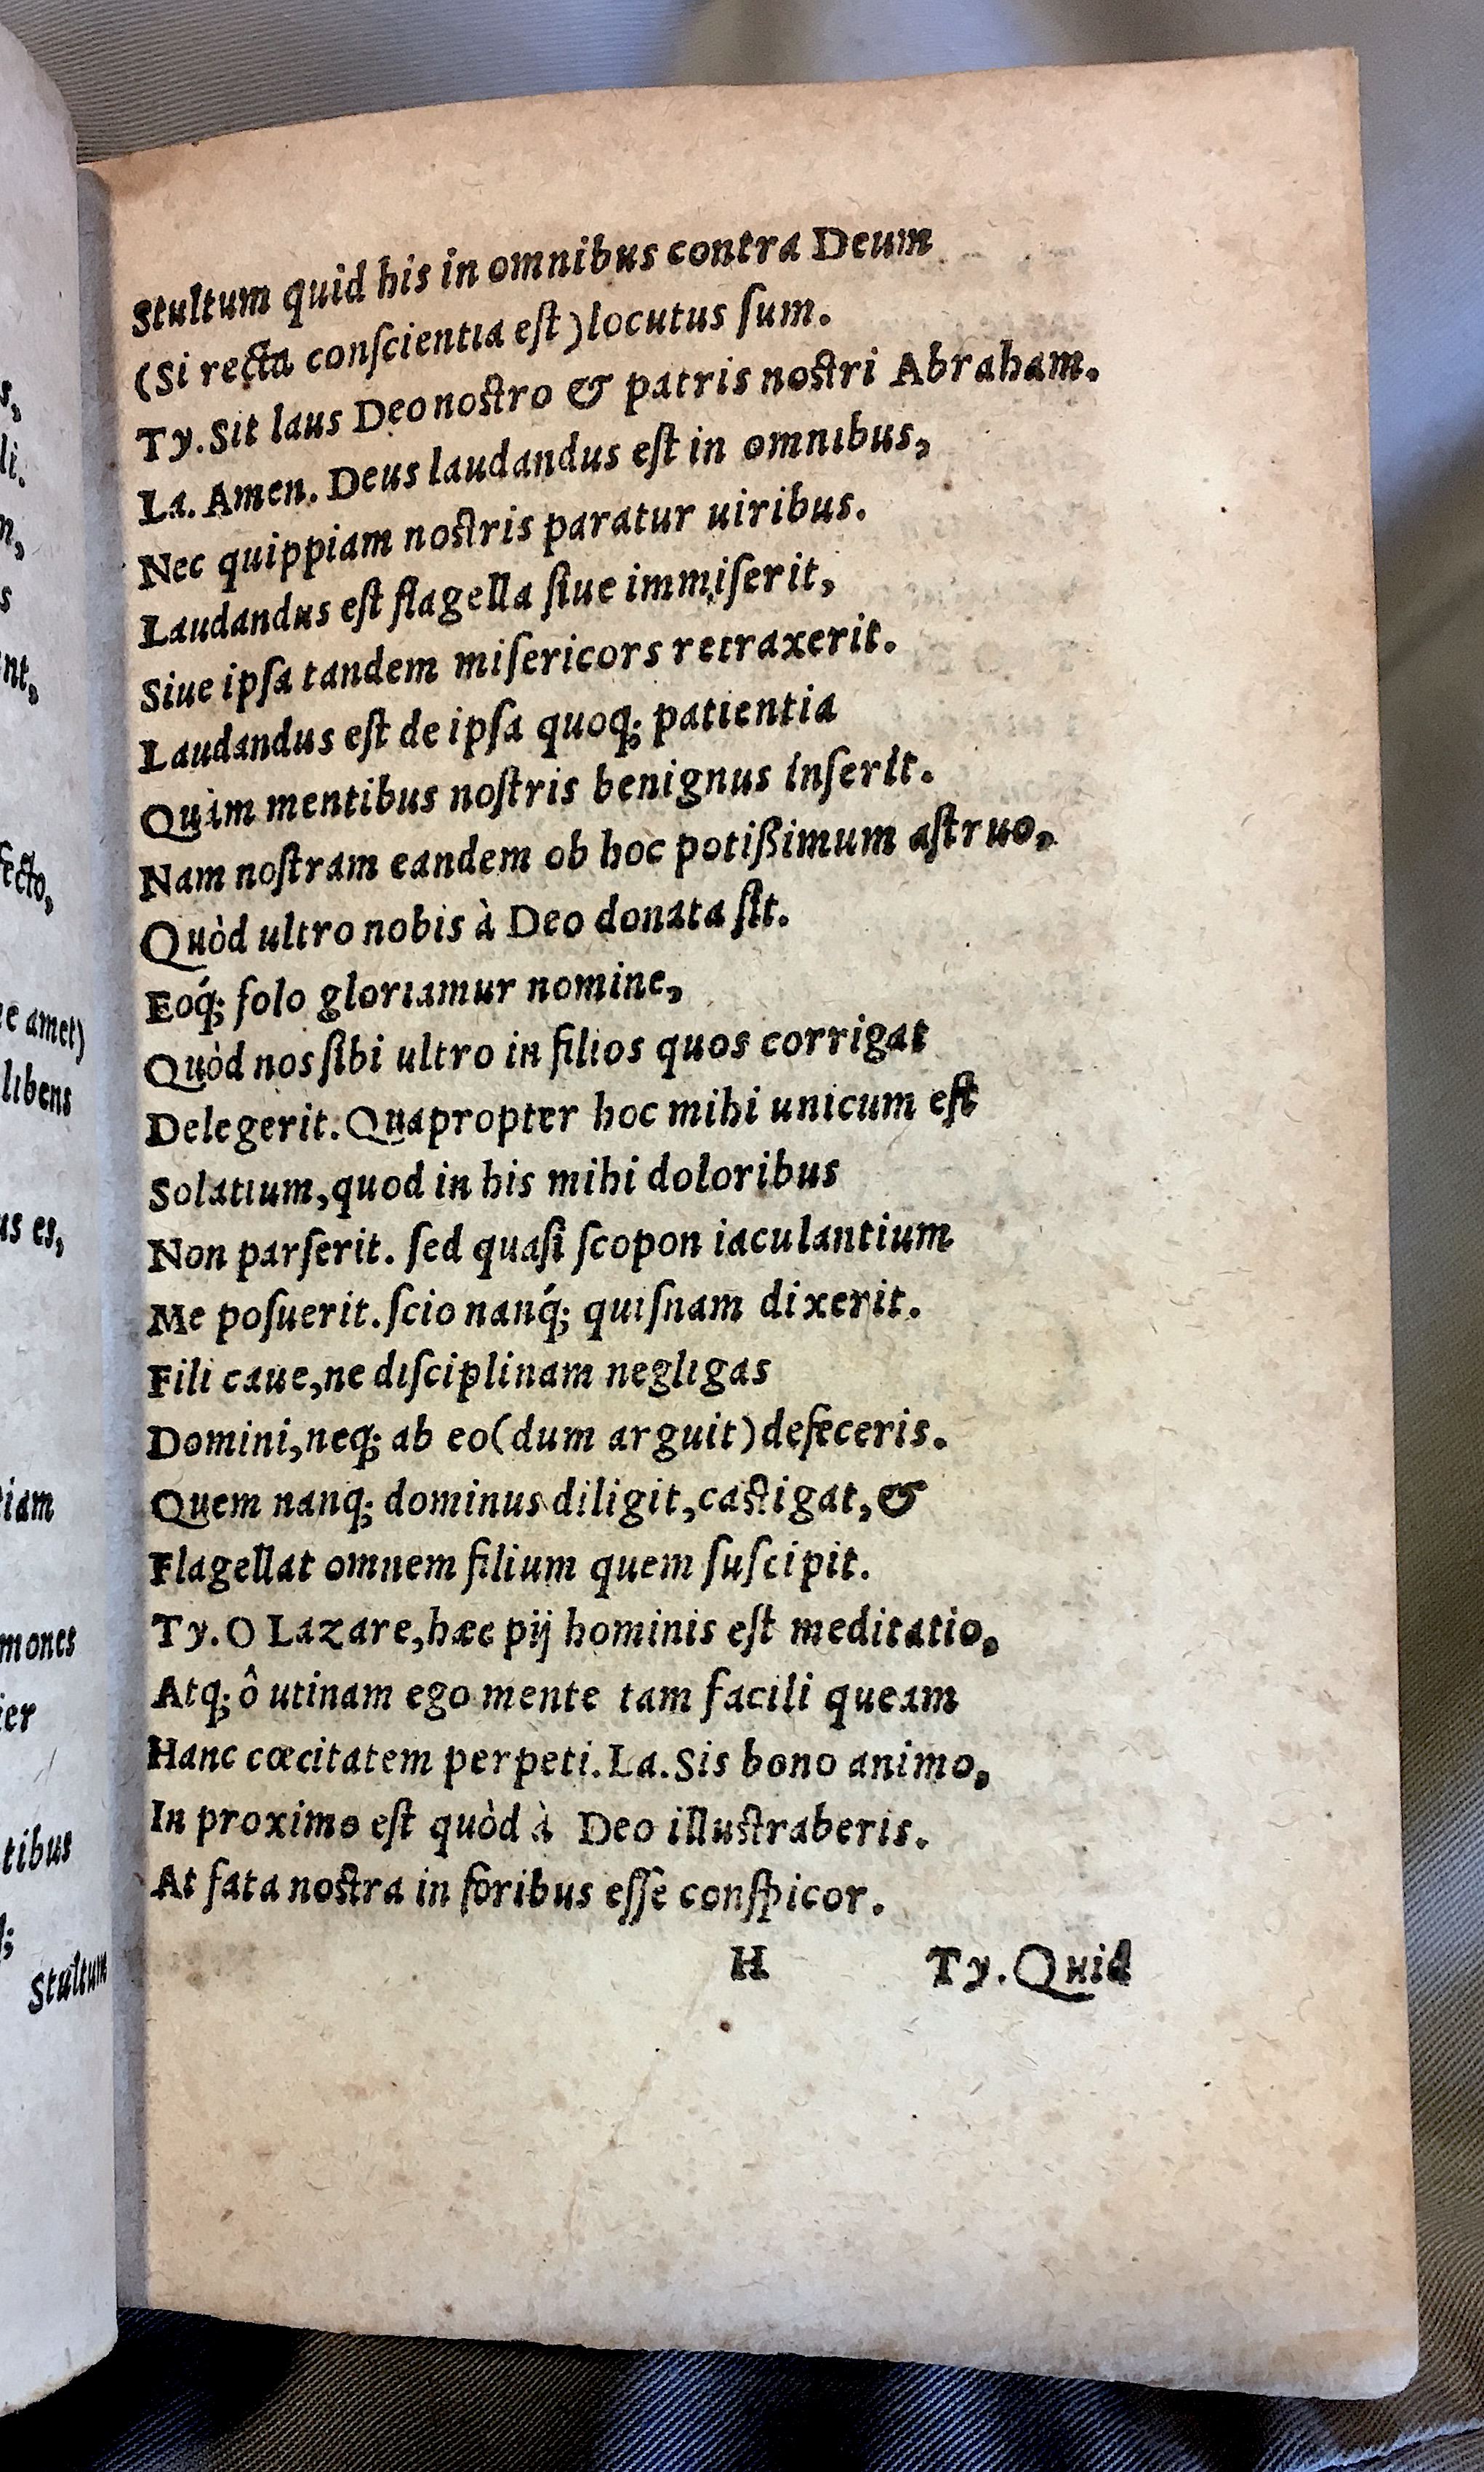 Stultum quid his in omnibus contra Deum
(Si recta conſcientia eſt) locutus ſum.
Ty. Sit laus Deo nostro & patris nostri Abraham.
La. Amen. Deus laudandus eſt in omnibus,
Nec quippiam nostris paratur uiribus.
Laudandus eſt flagella ſiue immiſerit,
Siue ipſa tandem miſericors retraxerit.
Laudandus eſt de ipſa quoq; patientia
Quàm mentibus noſtris benignus inſerit.
Nam noſtram eandem ob hoc potißimum aſtruo,
Quòd ultro nobis à Deo donata ſit.
Eoq́; ſolo gloriamur nomine,
Quòd nos ſibi ultro in filios quos corrigat
Delegerit. Quapropter hoc mihi unicum eſt
Solatium, quod in his mihi doloribus
Non parſerit. ſed quaſi ſcopon iaculantium
Me poſuerit. ſcio nanq́; quiſnam dixerit.
Fili caue, ne diſciplinam negligas
Domini, neq; ab eo (dum arguit) defeceris.
Quem nanq; dominus diligit, castigat, &
Flagellat omnem filium quem ſuſcipit.
Ty. O Lazare, hæc pij hominis eſt meditatio,
Atq; ô utinam ego mente tam facili queam
Hanc cœcitatem perpeti. La. Sis bono animo,
In proximo eſt quòd à Deo illustraberis.
At fata nostra in foribus eſſe conſpicor.
H Ty. Quid
s,
li.
n,
s
nt,
fecto,
ue amet)
libens
us es,
tiam
mones
ier
tibus
Stultum